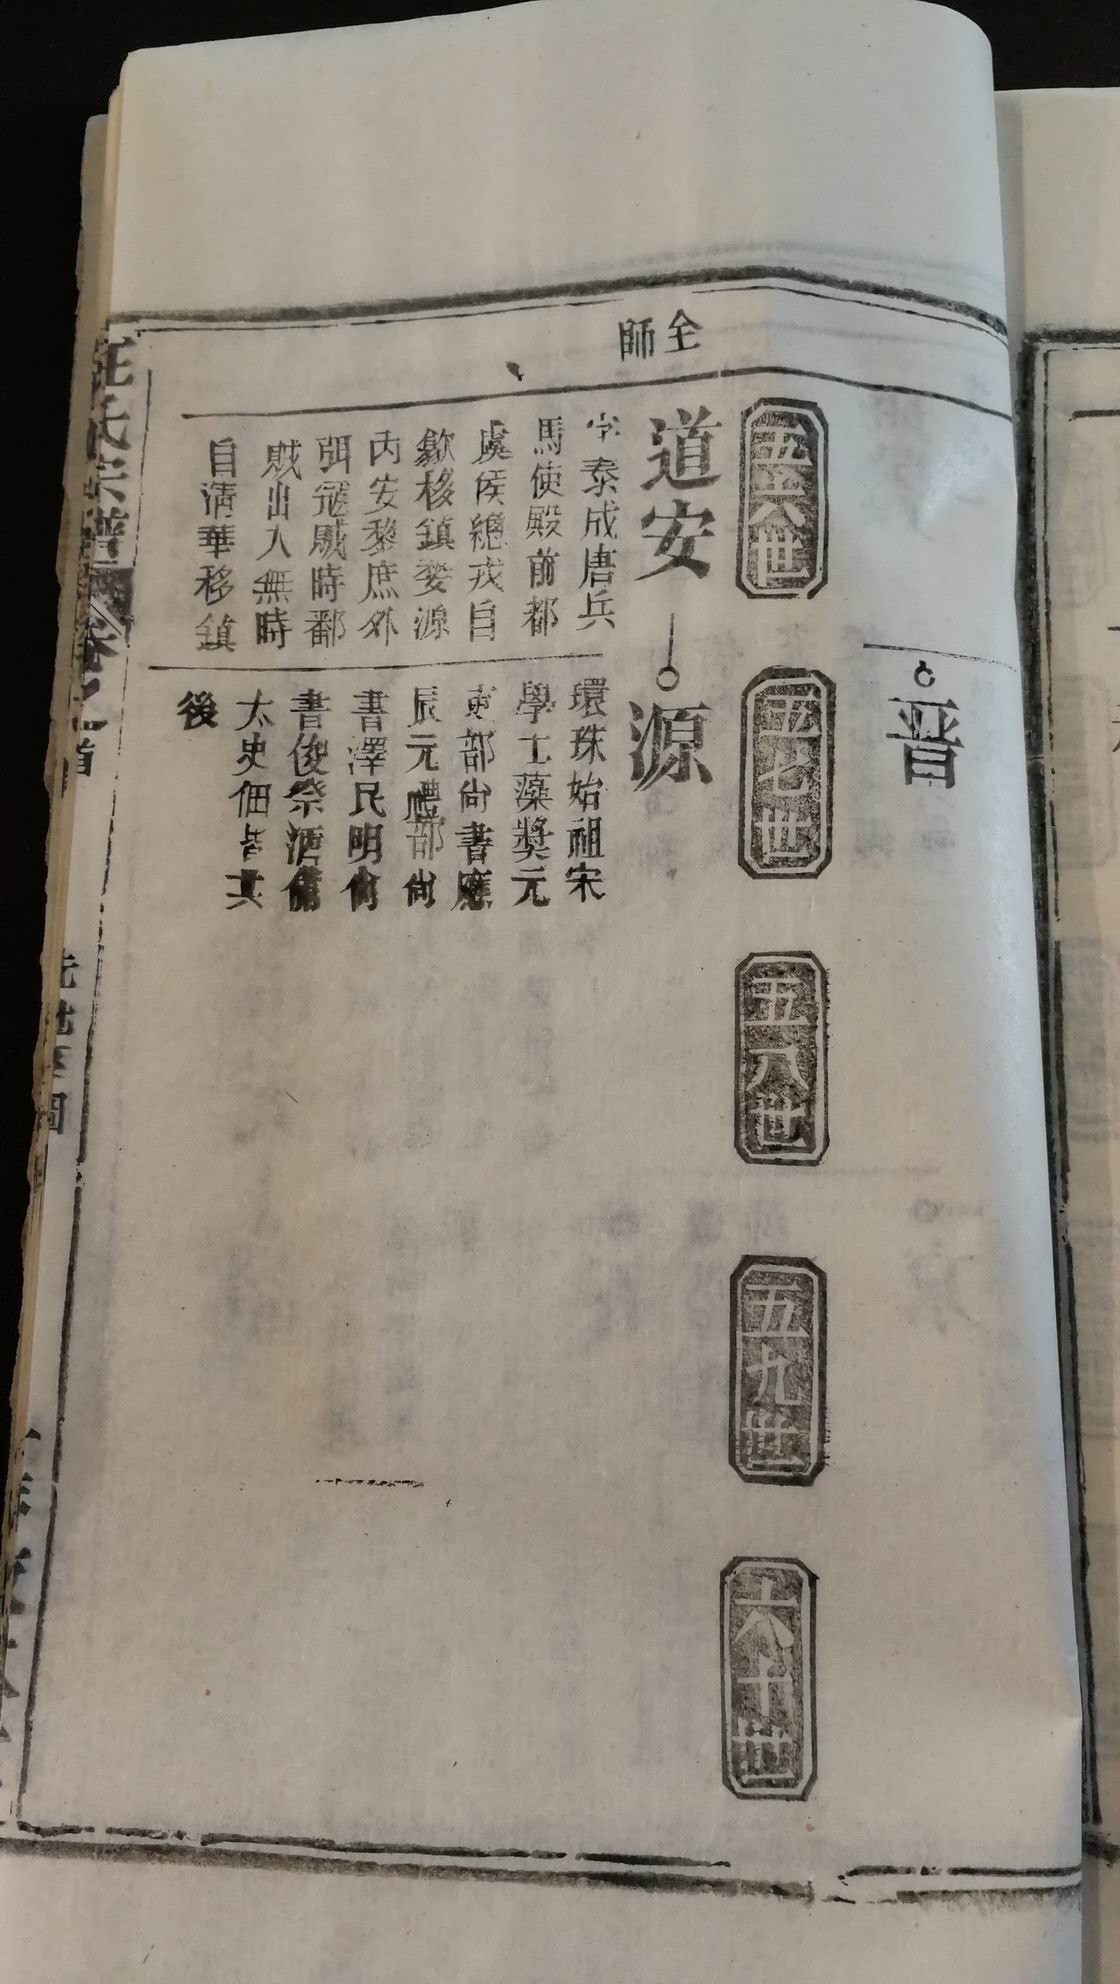 晋
五六世
五七世
五八世
五九世
六十世
全師
道安
字泰成唐兵
馬使殿前都
虞侯總戎自
歙移鎮婺源
内安黎庶外
弭冦賊時鄱
賊出入無時
自清華移鎮
源
環珠始祖宋
學士藻奬元
吏部尙書應
辰元禮部尙
書澤民明尙
書俊祭酒偹
太史佃皆其
後
汪氏宗譜
卷之首